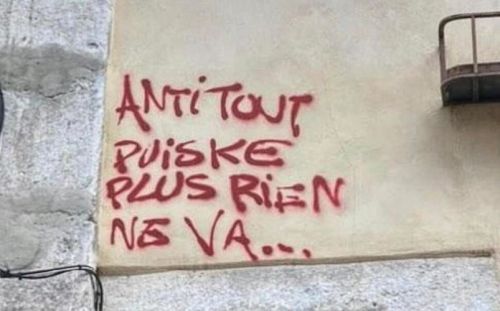 ANTiTOUT
PUiSKE
PLUS RiEN
NE VA...